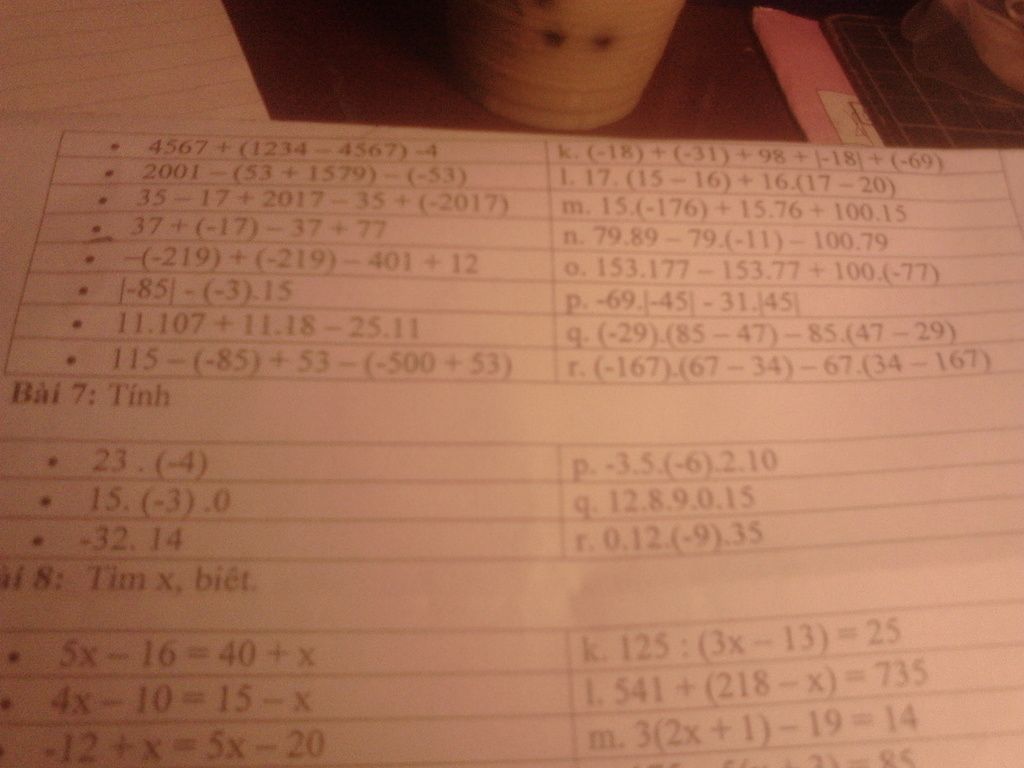 • 4567 + (1234 – 4567) -4
k. (-18) + (-31) + 98 + |-18| + (-69)
• 2001 – (53 + 1579) – (-53)
l. 17. (15 – 16) + 16.(17 – 20)
• 35 – 17 + 2017 – 35 + (-2017)
m. 15.(-176) + 15.76 + 100.15
• 37 + (-17) – 37 + 77
n. 79.89 – 79.(-11) – 100.79
• –(-219) + (-219) – 401 + 12
o. 153.177 – 153.77 + 100.(-77)
• |-85| - (-3).15
p. -69.|-45| - 31.|45|
• 11.107 + 11.18 – 25.11
q. (-29).(85 – 47) – 85.(47 – 29)
• 115 – (-85) + 53 – (-500 + 53)
r. (-167).(67 – 34) – 67.(34 – 167)
Bài 7: Tính
• 23 . (-4)
p. -3.5.(-6).2.10
• 15. (-3) .0
q. 12.8.9.0.15
• -32. 14
r. 0.12.(-9).35
ài 8: Tìm x, biết.
• 5x – 16 = 40 + x
k. 125 : (3x – 13) = 25
• 4x – 10 = 15 – x
l. 541 + (218 – x) = 735
• -12 + x = 5x – 20
m. 3(2x + 1) – 19 = 14
= 85